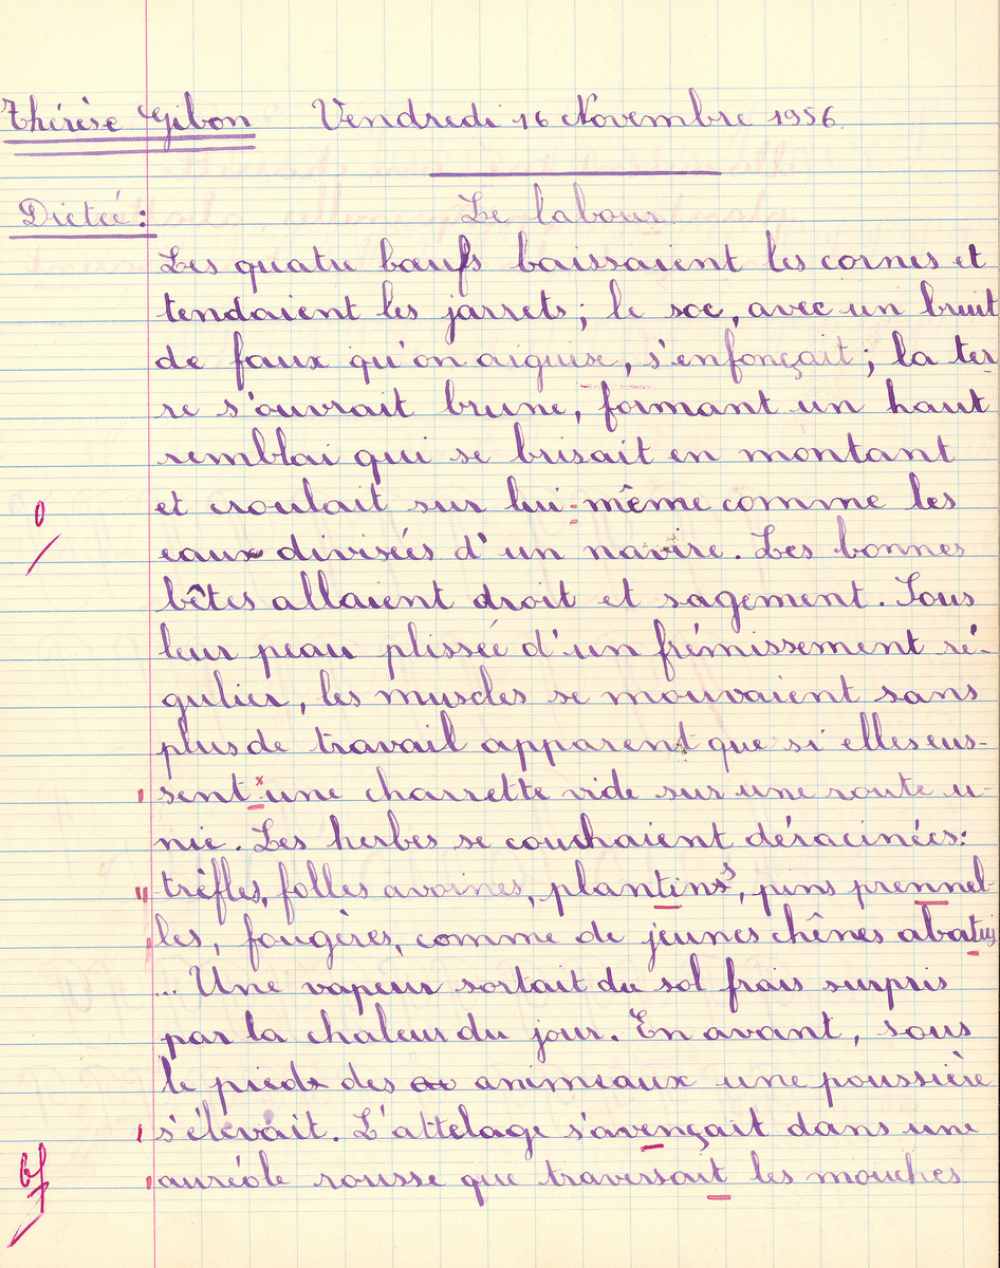 Thérèse Gibon Vendredi 16 Novembre 1956
Dictée: Le labour
Les quatre bœufs baissaient les cornes et
tendaient les jarrets; le soc, avec un bruit
de faux qu'on aiguise, s'enfonçait; la ter
re s'ouvrait brune, formant un haut
remblai qui se brisait en montant
et croulait sur lui-même comme les
0
eaux divisées d'un navire. Les bonnes
bêtes allaient droit et sagement. Sous
leur peau plissée d'un frémissement ré-
gulier, les muscles se mouvaient sans
plus de travail apparent que si elles eus-
sent x une charrette vide sur une route u-
nie. Les herbes se couchaient déracinées:
trèfles, folles avoines, plantins, pins prennel-
les, fougères, comme de jeunes chênes abatus
... Une vapeur sortait du sol frais surpris
par la chaleur du jour. En avant, sous
le pieds des animeaux une poussière
s'élevait. L'attelage s'avençait dans une
auréole rousse que traversait les mouches